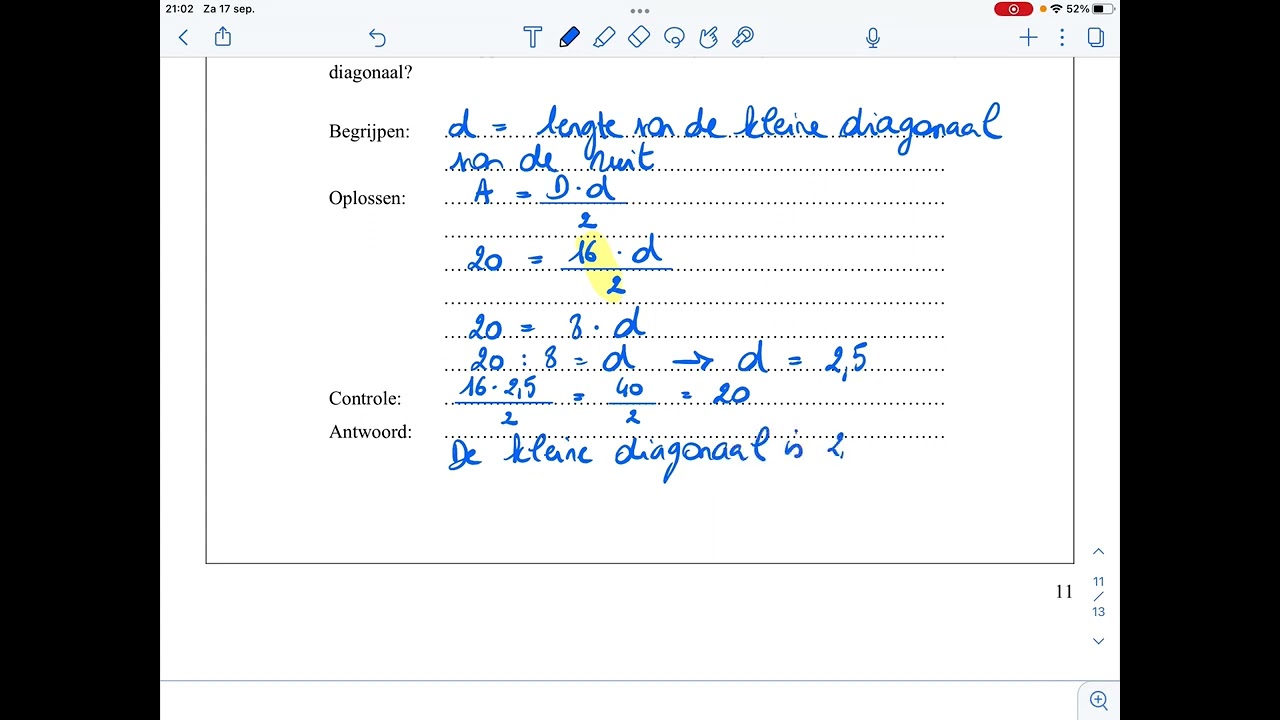 21:02 Za 17 sep. 52%
diagonaal?
Begrijpen: d = lengte van de kleine diagonaal
van de ruit
Oplossen: A = D·d/2
20 = 16·d/2
20 = 8·d
20 : 8 = d → d = 2,5
Controle: 16·2,5/2 = 40/2 = 20
Antwoord:
De kleine diagonaal is 2,
11
11
/
13